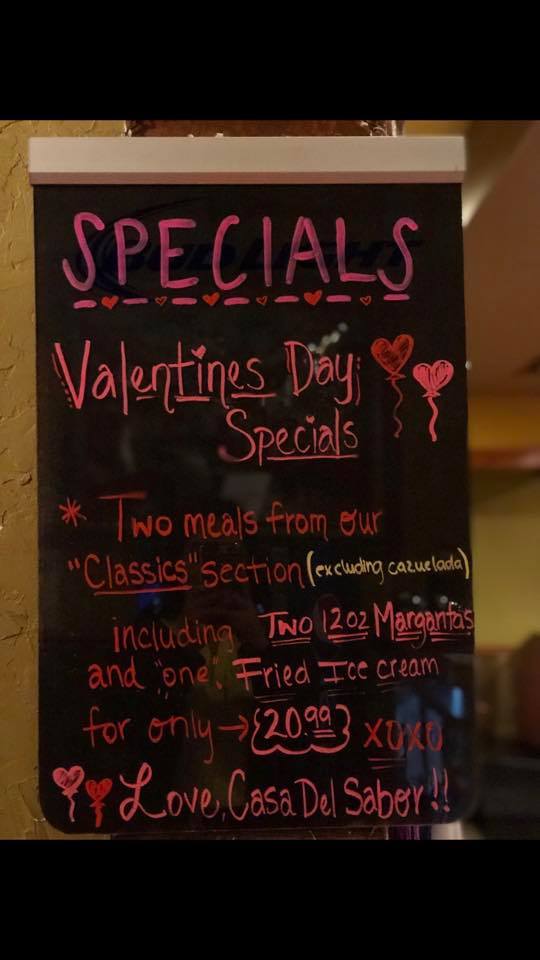 SPECIALS
BUD LIGHT
Valentines Day
Specials
* Two meals from our
"Classics" section (excluding cazuelada)
including Two 12oz Margaritas
and "one" Fried Ice cream
for only → {20.99} XOXO
Love, Casa Del Sabor!!